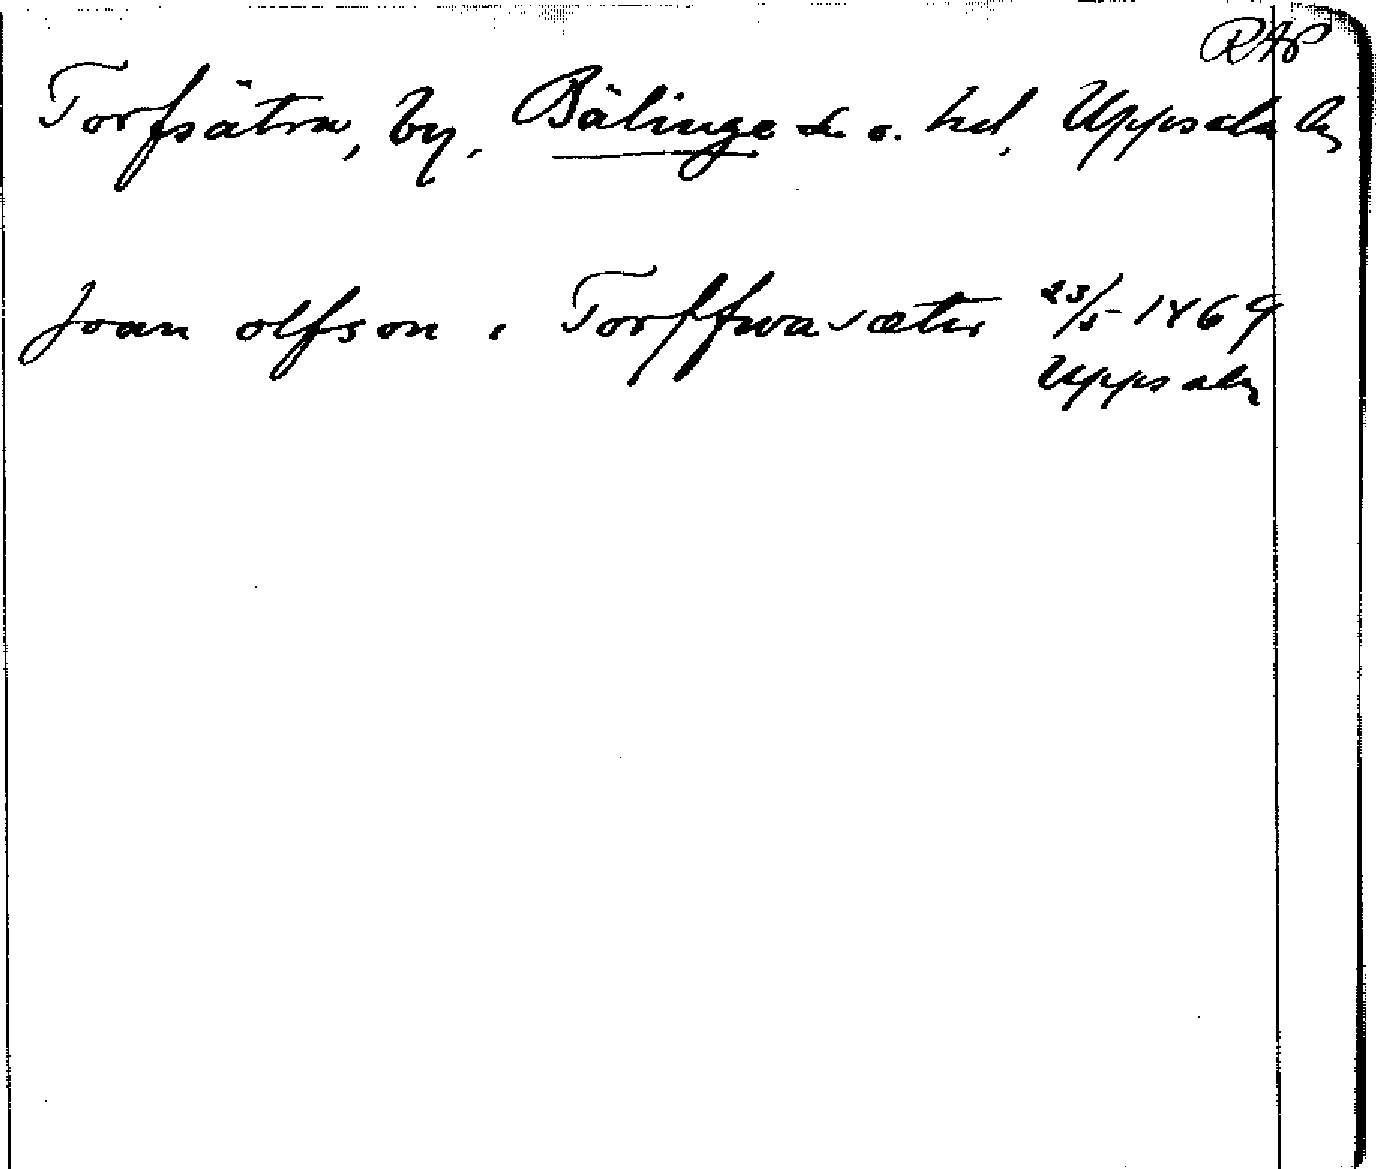 RAP
Torfsätra, by, Bälinge sn o. hd, Uppsala län
Joan olfson i Torffwasætre 23/5 1469
Uppsala